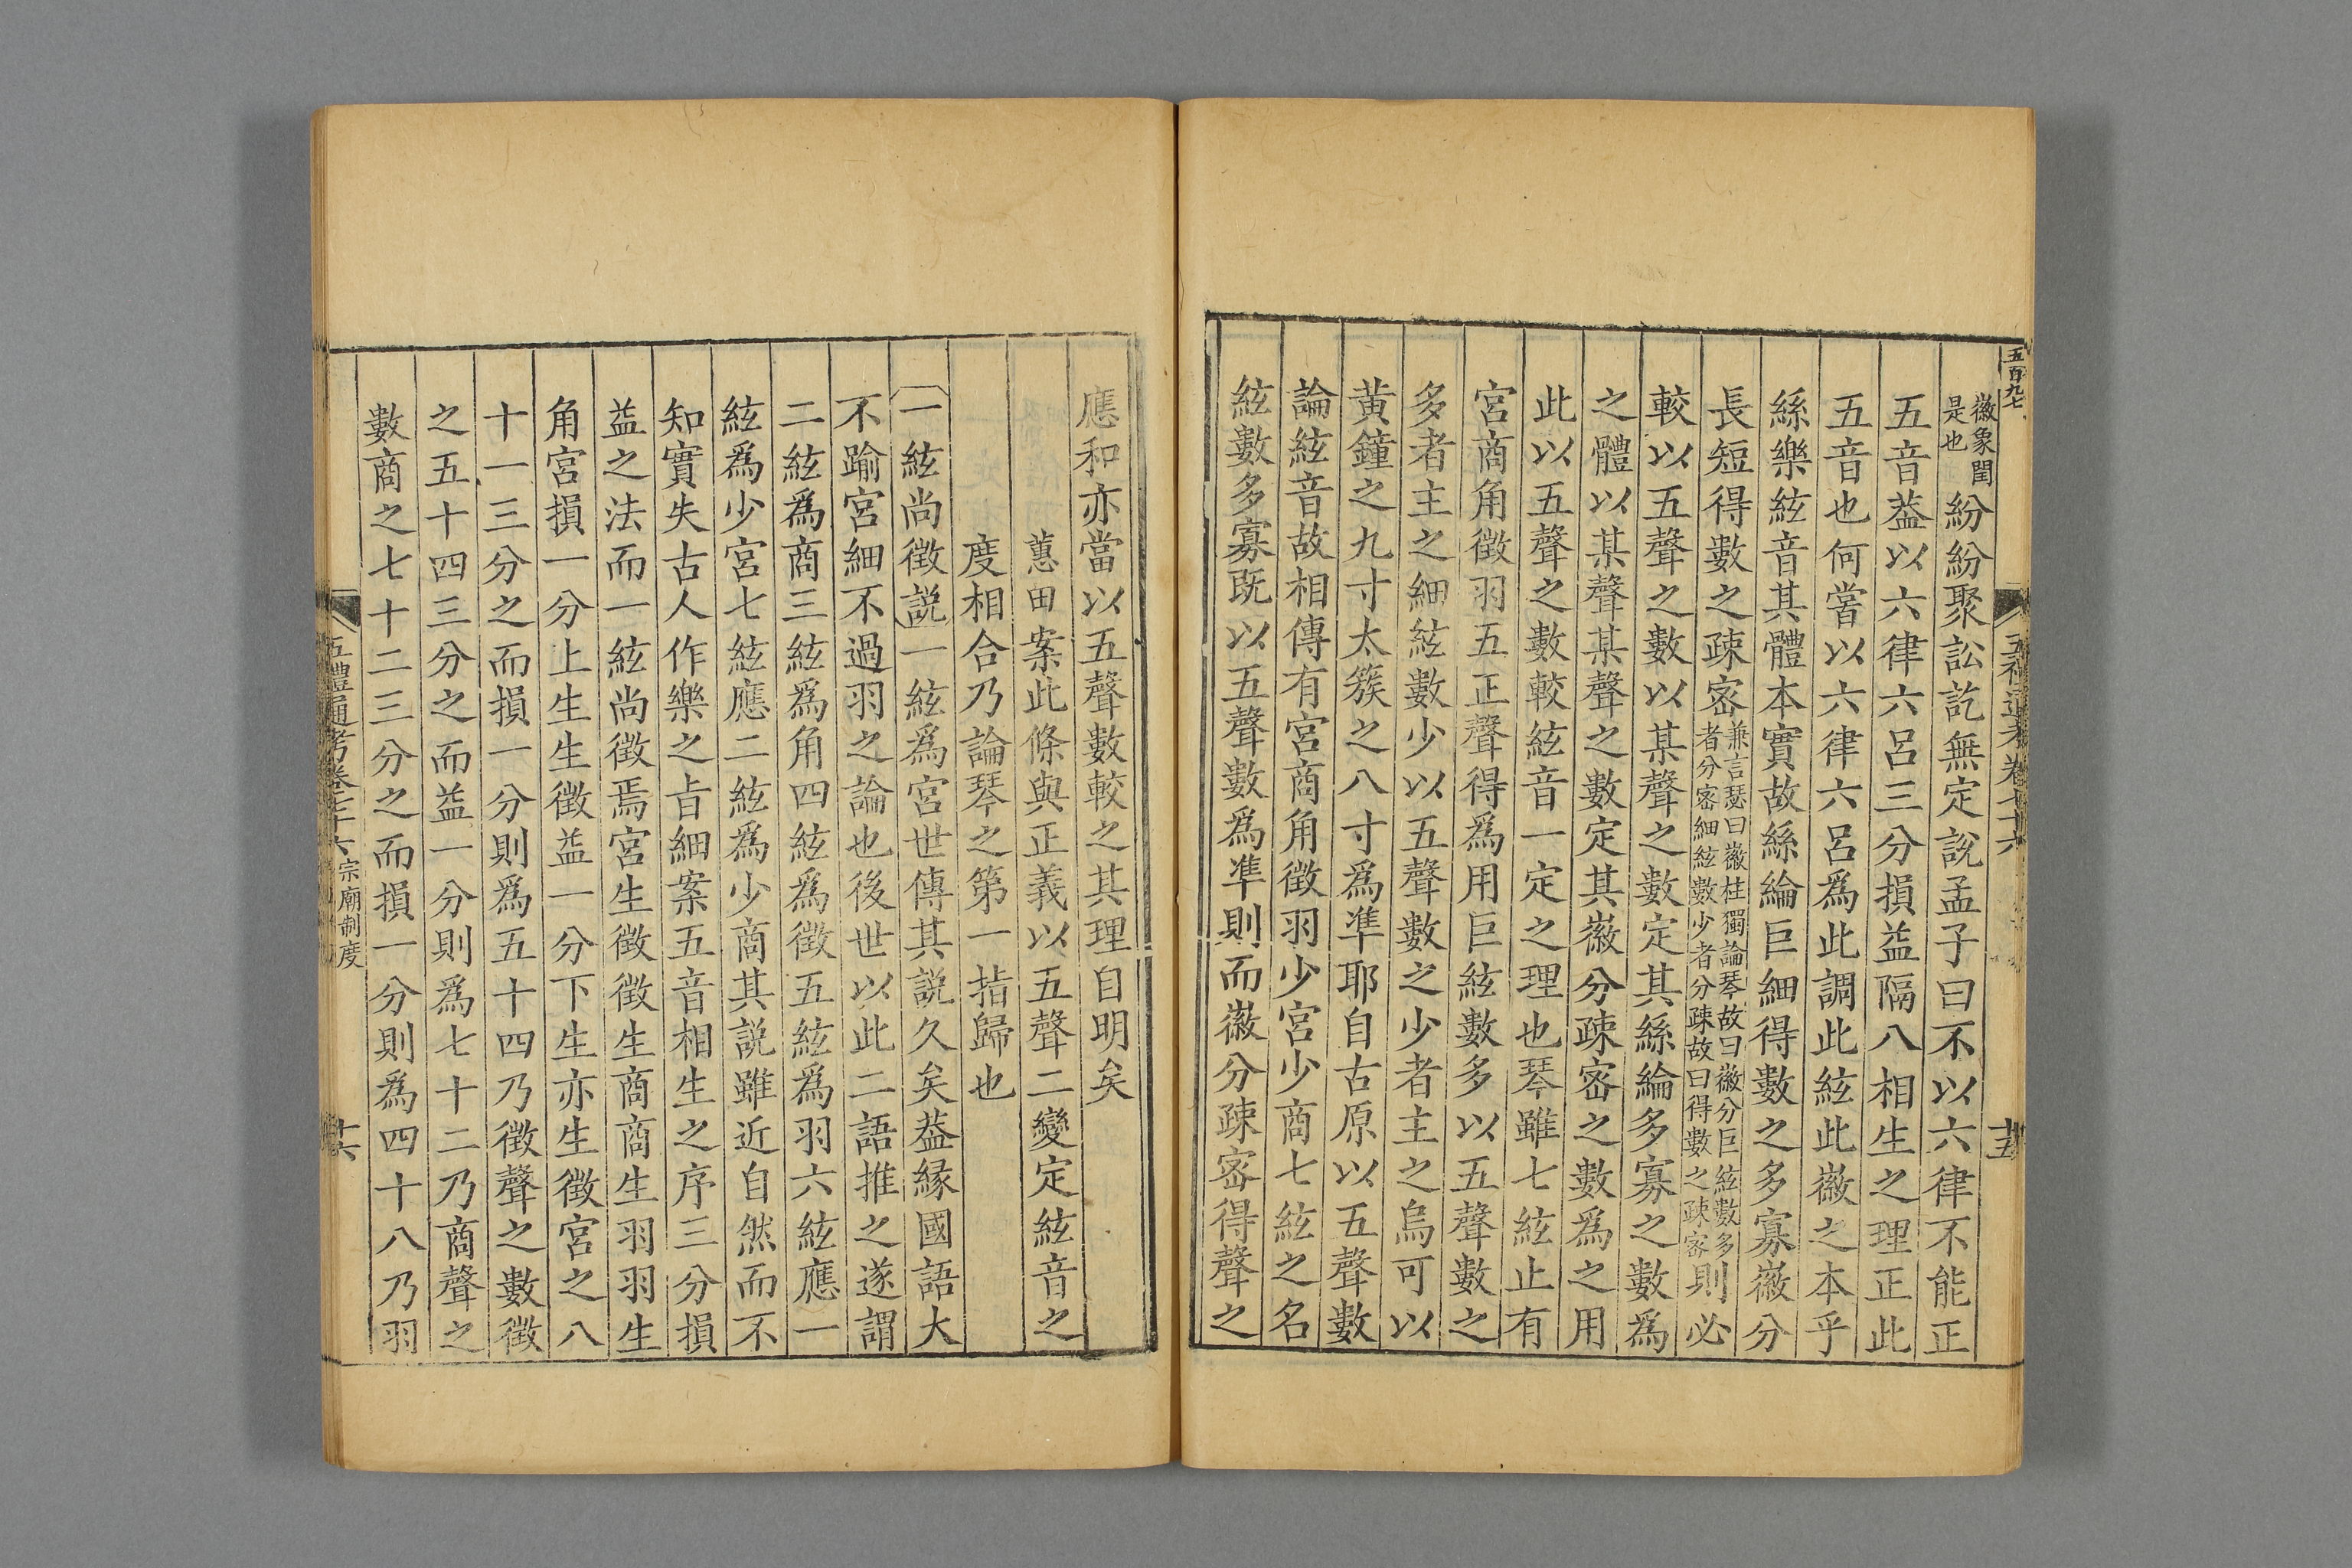 五百九七
五禮通考卷七十六
十五
徽象閏
是也
紛紛聚訟訖無定說孟子曰不以六律不能正
五音葢以六律六呂三分損益隔八相生之理正此
五音也何嘗以六律六呂爲此調此絃此徽之本乎
絲樂絃音其體本實故絲綸巨細得數之多寡徽分
長短得數之疎宻
兼言瑟曰徽柱獨論琴故曰徽分巨絃數多
者分宻細絃數少者分疎故曰得數之疎宻
則必
較以五聲之數以某聲之數定其絲綸多寡之數爲
之體以某聲某聲之數定其徽分疎宻之數爲之用
此以五聲之數較絃音一定之理也琴雖七絃止有
宮商角徵羽五正聲得爲用巨絃數多以五聲數之
多者主之細絃數少以五聲數之少者主之烏可以
黃鐘之九寸太簇之八寸爲凖耶自古原以五聲數
論絃音故相傳有宮商角徵羽少宮少商七絃之名
絃數多寡既以五聲數爲凖則而徽分疎宻得聲之
應和亦當以五聲數較之其理自明矣
蕙田案此條與正義以五聲二變定絃音之
度相合乃論琴之第一指歸也
一絃尚徵說一絃爲宮世傳其說久矣葢緣國語大
不踰宮細不過羽之論也後世以此二語推之遂謂
二絃爲商三絃爲角四絃爲徵五絃爲羽六絃應一
絃爲少宮七絃應二絃爲少商其説雖近自然而不
知實失古人作樂之㫖細案五音相生之序三分損
益之法而一絃尚徵焉宮生徵徵生商商生羽羽生
角宮損一分上生生徵益一分下生亦生徵宮之八
十一三分之而損一分則爲五十四乃徵聲之數徵
之五十四三分之而益一分則爲七十二乃商聲之
數商之七十二三分之而損一分則爲四十八乃羽
五禮通考卷七十六 宗廟制度
十六